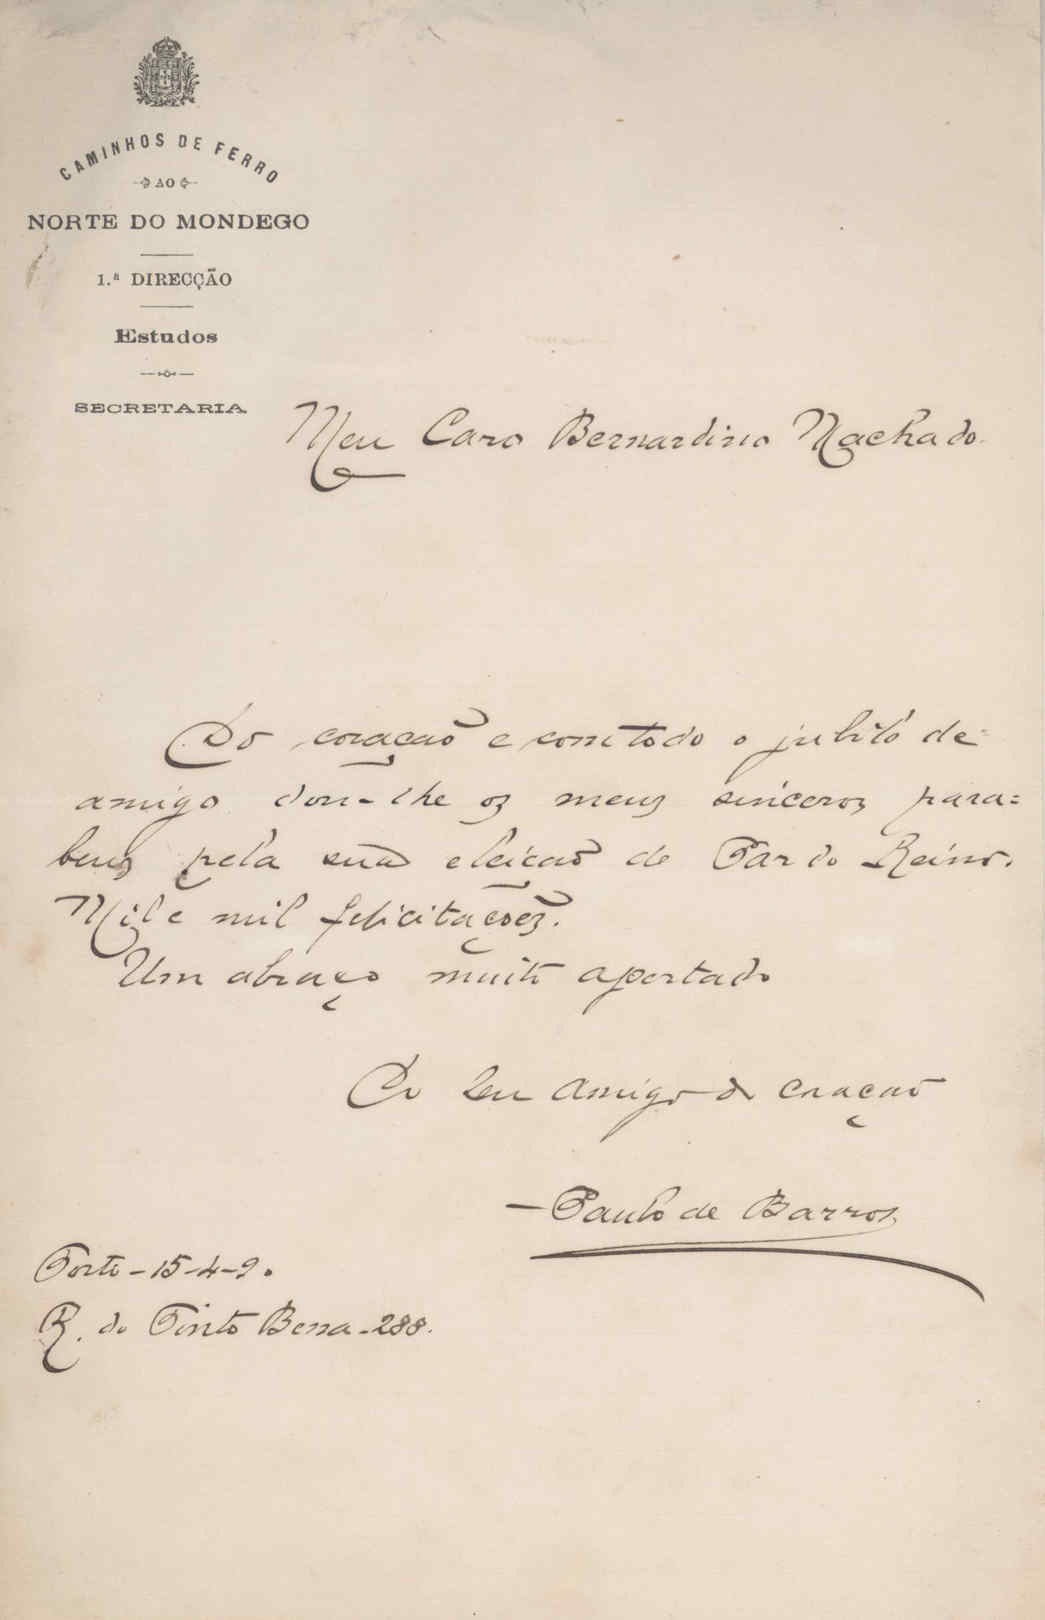 CAMINHOS DE FERRO
AO
NORTE DO MONDEGO
1.ª DIRECÇÃO
Estudos
SECRETARIA
Meu Caro Bernardino Machado.
Do coração e com todo o jubilo de
amigo dou-lhe os meus sinceros para=
bens pela sua eleição de Par do Reino.
Mil e mil felicitações.
Um abraço muito apertado
Do seu amigo do coração
— Paulo de Barros
Porto - 15-4-9.
R. do Pinto Bessa - 288.